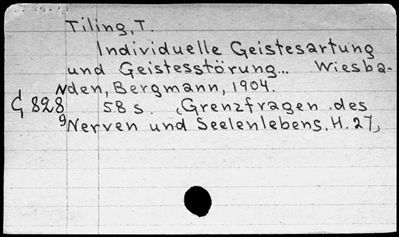 Tiling, T.
Individuelle Geistesartung
und Geistesstörung... Wiesba-
den, Bergmann, 1904.
828 58 s. (Grenzfragen des
Nerven und Seelenlebens. H. 27)